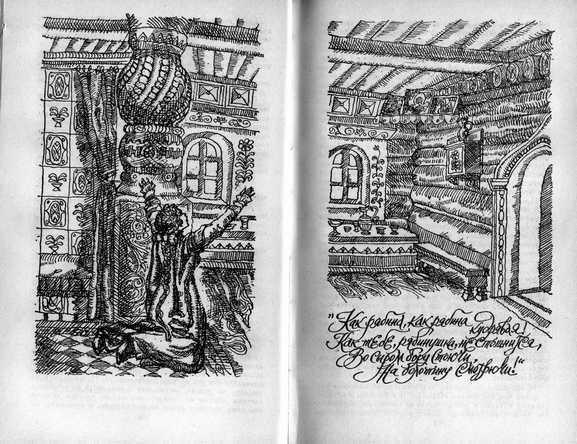 "Как рябина, как рябина кудрявая!
Как тебе, рябинушка, не стошнится,
Во сыром бору стоючи,
На болотину смотрючи!"